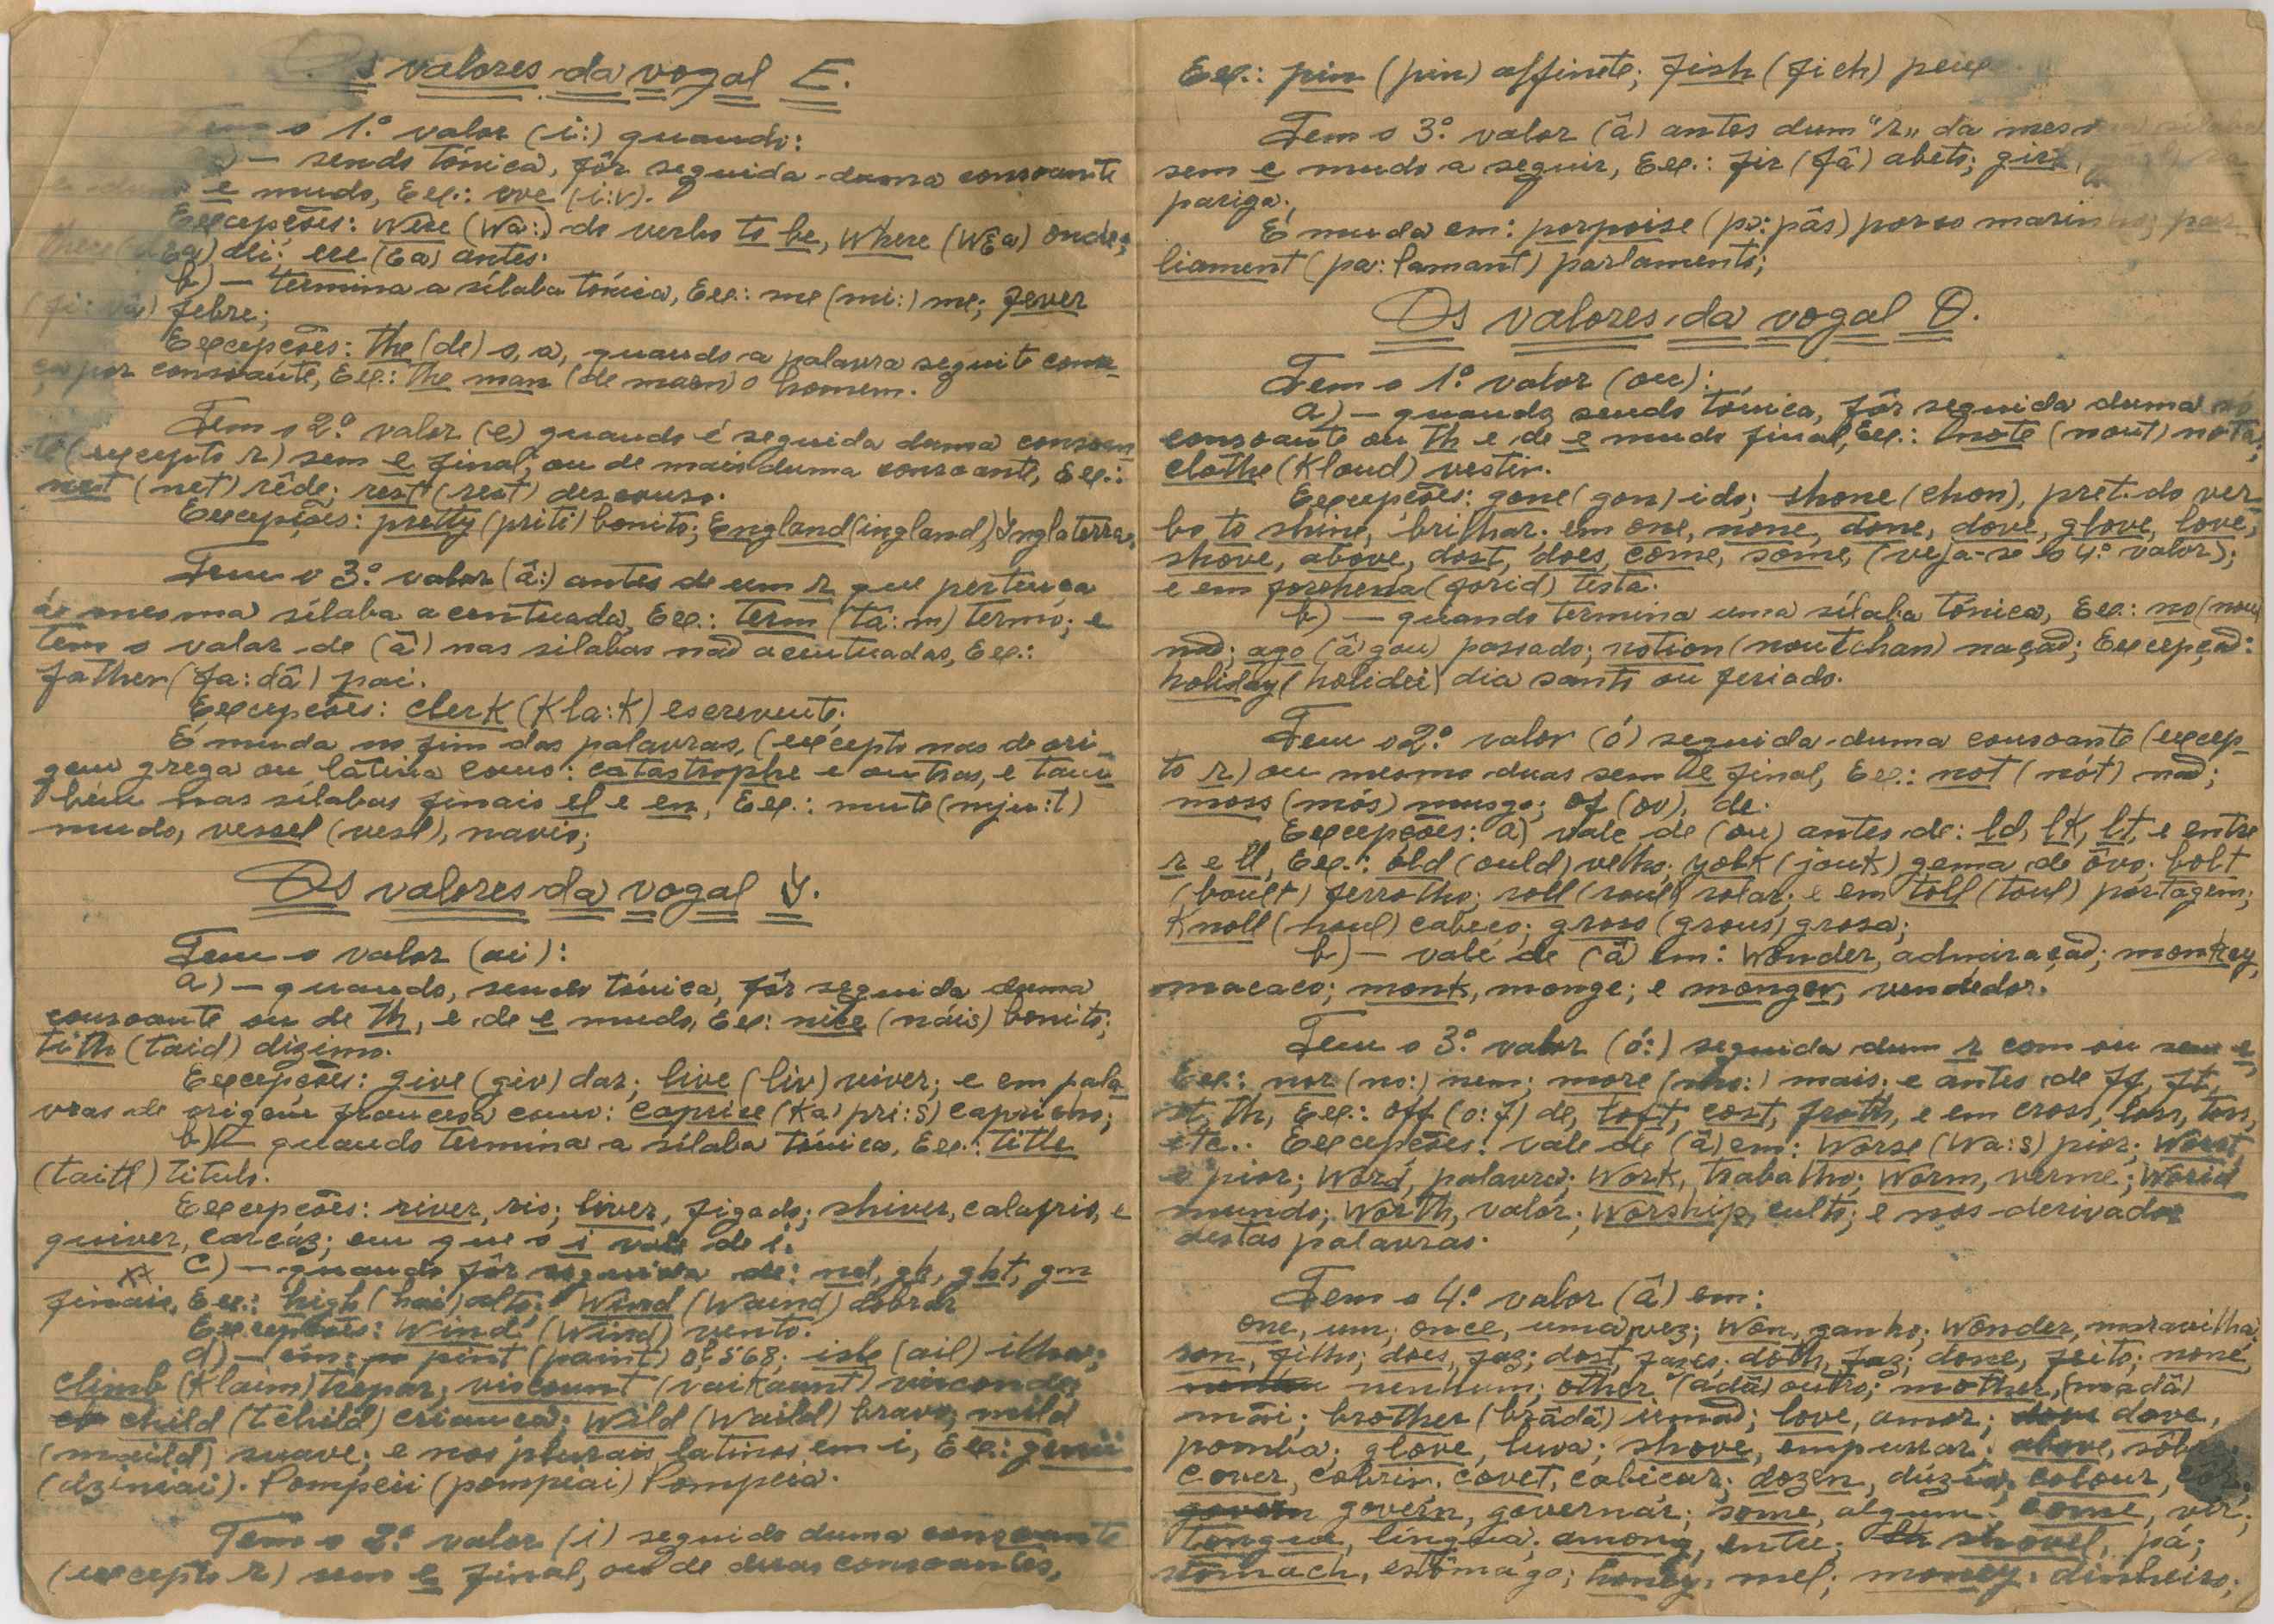 Os valores da vogal E.
Tem o 1.º valor (i:) quando:
a) — sendo tónica, fôr seguida duma consoante
e mudo, Ex.: eve (i:v).
Excepções: were (wâ:) do verbo to be, where (wÉa) onde;
there (dÉa) ali; ere (Éa) antes.
b) — termina a sílaba tónica, Ex.: me (mi:) me; fever
(fi:vâ) febre;
Excepções: the (de) o, a, quando a palavra seguite come-
ça por consoante, Ex.: the man (de maen) o homem.
Tem o 2.º valor (e) quando é seguida duma consoan
te (excepto r) sem e final; ou de mais duma consoante, Ex.:
net (net) rêde; rest (rest) descanso.
Excepções: pretty (priti) bonito; England (ingland) Inglaterra.
Tem o 3.º valor (â:) antes de um r que pertença
áo mesma sílaba acentuada, Ex.: term (tâ:m) termo; e
tem o valar de (â) nas silabas não acentuadas, Ex.:
father (fa:dâ) pai.
Excepções: clerk (Kla:K) escrevente.
É muda no fim das palavras, (excepto nas de ori-
gem grega ou latina como: catastrophe e outras, e tam
bém nas sílabas finais el e en, Ex.: mute (mju:t)
mudo, vessel (vesl), navio;
Os valores da vogal I.
Tem o valor (ai):
a) — quando, sendo tónica, fôr seguida duma
consoante ou de th, e de e mudo, Ex: nice (náis) bonito;
tith (taid) dizimo.
Excepções: give (giv) dar; live (liv) viver; e em pala
vras de origem francesa como: caprice (Ka pri:s) capricho;
b) — quando termina a sílaba tónica, Ex.: title
(taitl) titulo.
Excepções: river, rio; liver, figado; shiver, calafrio, e
quiver, carcáz; em que o i vale de i.
c) — quando fôr seguida de: nd, gh, ght, gn
finais, Ex.: high (hai) alto; Wind (Waind) dobrar
Excepções: Wind (Wind) vento.
d) — em: pint (paint) 0,l568; isle (ail) ilha;
climb (Klaim) trepar; viscount (vaiKaunt) visconde;
child (tchild) criança; Wild (Waild) bravo; mild
(maild) suave; e nos plurais latinos em i, Ex.: genii
(dziniai). Pompeii (pompiai) Pompeia.
Tem o 2.º valor (i) seguido duma consoante
(excepto r) sem e final, ou de duas consoantes,
Ex.: pin (pin) alfinete; fish (fich) peixe
Tem o 3.º valor (â) antes dum "r" da mesma silaba
sem e mudo a seguir, Ex.: fir (fâ) abeto; girl,
pariga.
É muda em: porpoise (pa:pâs) porco marinho; par-
liament (pa:lamant) parlamento;
Os valores da vogal O.
Tem o 1.º valor (ou):
a) — quando sendo tónica, fôr seguida duma só
consoante ou th e de e mudo final, Ex.: note (nout) nota;
clothe (Kloud) vestir.
Excepções: gone (gon) ido; shone (chon), pret. do ver-
bo to shine, brilhar; em one, none, done, dove, glove, love,
shove, above, dost, does, come, some, (veja-se o 4.º valor);
e em forehena (forid) testa.
b) — quando termina uma sílaba tónica, Ex.: no (nou)
não; ago (â gou) passado; notion (noutchan) noção; Excepção:
holiday (holidei) dia santo ou feriado.
Tem o 2.º valor (ó) seguida duma consoante (excep-
to r) ou mesmo duas sem e final, Ex.: not (nót) não;
moss (mós) musgo; of (ov), de.
Excepções: a) vale de (ou) antes de: ld, lk, lt, e entre
r e ll, Ex.: old (ould) velho; yolk (jouk) gema de ôvo; bolt
(boult) ferrolho; roll (roul) rolar; e em toll (toul) portagem;
Knoll (noul) cabeço; gross (grous) grosa;
b) — vale de (â) em: Wonder, admiração; monkey,
macaco; monk, monge; e monger, vendedor.
Tem o 3.º valor (ó:) seguida dum r com ou sem e,
Ex.: nor (no:) nem; more (mo:) mais; e antes de ff, ft,
st, th, Ex.: off (o:f) de, toft, cost, froth, e em cross, loss, toss,
etc.. Excepções: vale de (â) em: Worse (Wa:s) pior; Worst,
o pior; Word, palavra; Work, trabalho; Worm, verme; World
mundo; Worth, valor; Worship, culto; e nos derivados
destas palavras.
Tem o 4.º valor (â) em:
one, um; once, uma vez; Won, ganho; Wonder, maravilha;
son, filho; does, faz; dost, fazes; doth, faz; done, feito; none,
nenhum; other (adâ) outro; mother, (madâ)
mãi; brother (brâdâ) irmão; love, amor; dove,
pomba; glove, luva; shove, empurrar; above, sôbre;
cover, cobrir; covet, cobiçar; dozen, dúzia; colour, côr;
govern, governar; some, algum; come, vir;
tongue, língua; among, entre; shovel, pá;
stomach, estômago; honey, mel; money, dinheiro;